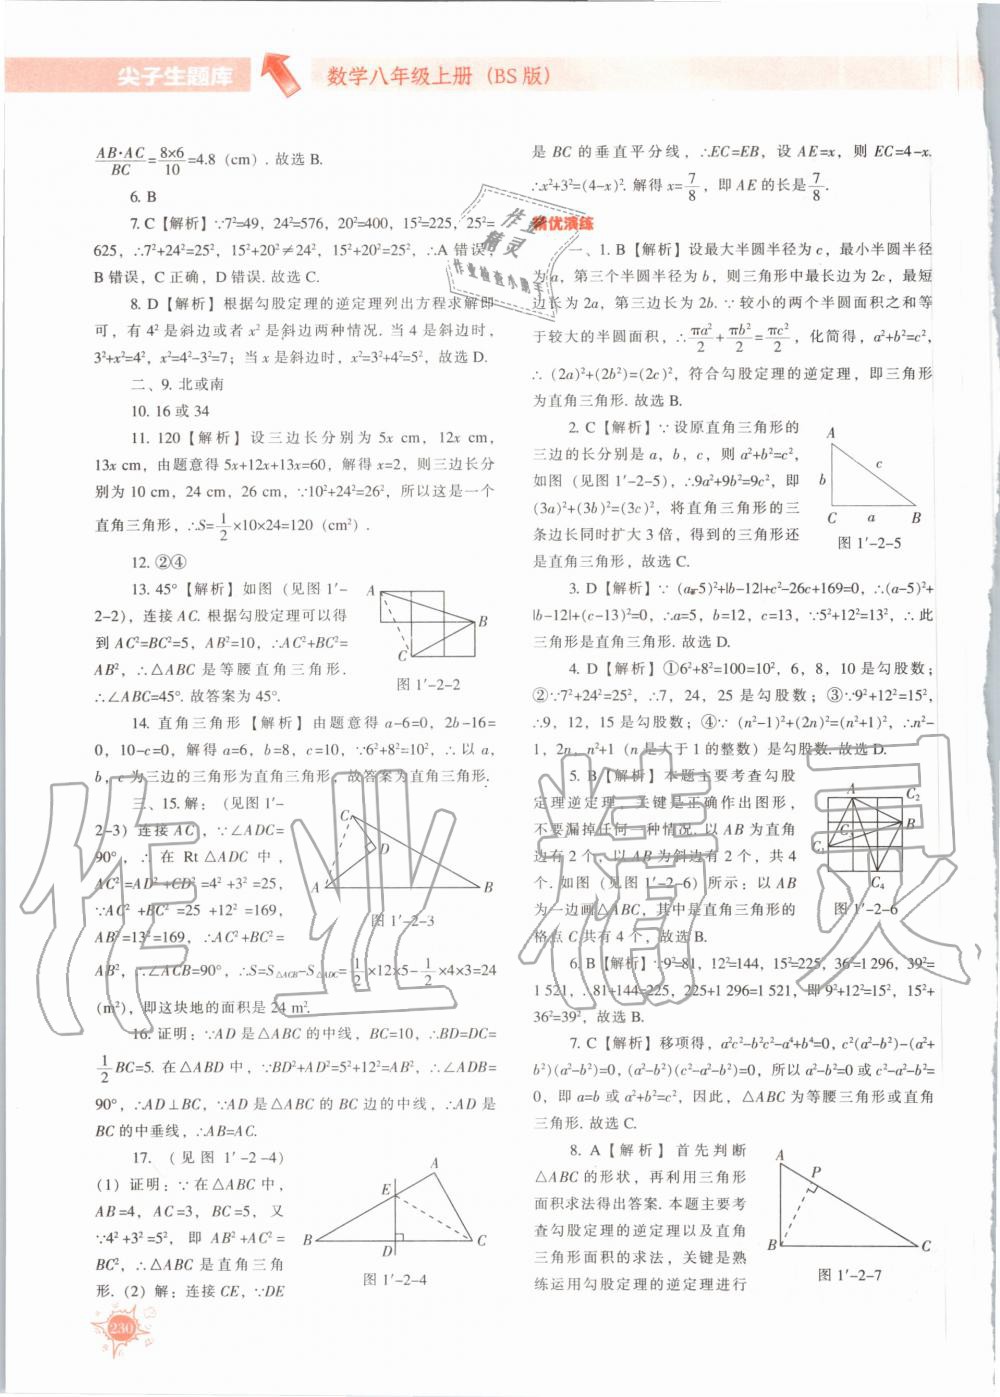 尖子生题库
数学八年级上册（BS版）
AB·AC/BC=8×6/10=4.8（cm）. 故选 B.
6. B
7. C【解析】∵7²=49，24²=576，20²=400，15²=225，25²=
625，∴7²+24²=25²，15²+20²≠24²，15²+20²=25²，∴A 错误，
B 错误，C 正确，D 错误. 故选 C.
8. D【解析】根据勾股定理的逆定理列出方程求解即
可，有 4² 是斜边或者 x² 是斜边两种情况. 当 4 是斜边时，
3²+x²=4²，x²=4²-3²=7；当 x 是斜边时，x²=3²+4²=5²，故选 D.
二、9. 北或南
10. 16 或 34
11. 120【解析】设三边长分别为 5x cm，12x cm，
13x cm，由题意得 5x+12x+13x=60，解得 x=2，则三边长分
别为 10 cm，24 cm，26 cm，∵10²+24²=26²，所以这是一个
直角三角形，∴S=1/2×10×24=120（cm²）.
12. ②④
13. 45°【解析】如图（见图 1′-
2-2），连接 AC. 根据勾股定理可以得
到 AC²=BC²=5，AB²=10，∴AC²+BC²=
AB²，∴△ABC 是等腰直角三角形.
∴∠ABC=45°. 故答案为 45°.
A
B
C
图 1′-2-2
14. 直角三角形【解析】由题意得 a-6=0，2b-16=
0，10-c=0，解得 a=6，b=8，c=10，∵6²+8²=10²，∴以 a，
b，c 为三边的三角形为直角三角形. 故答案为直角三角形.
三、15. 解：（见图 1′-
2-3）连接 AC，∵∠ADC=
90°，∴在 Rt△ADC 中，
AC²=AD²+CD²=4²+3²=25，
∵AC²+BC²=25+12²=169，
AB²=13²=169，∴AC²+BC²=
AB²，∴∠ACB=90°，∴S=S△ACB-S△ADC=1/2×12×5-1/2×4×3=24
（m²），即这块地的面积是 24 m².
C
D
A
B
图 1′-2-3
16. 证明：∵AD 是△ABC 的中线，BC=10，∴BD=DC=
1/2BC=5. 在△ABD 中，∵BD²+AD²=5²+12²=AB²，∴∠ADB=
90°，∴AD⊥BC，∵AD 是△ABC 的 BC 边的中线，∴AD 是
BC 的中垂线，∴AB=AC.
17. （见图 1′-2-4）
（1）证明：∵在△ABC 中，
AB=4，AC=3，BC=5，又
∵4²+3²=5²，即 AB²+AC²=
BC²，∴△ABC 是直角三角
形.（2）解：连接 CE，∵DE
A
E
B
D
C
图 1′-2-4
230
是 BC 的垂直平分线，∴EC=EB，设 AE=x，则 EC=4-x.
∴x²+3²=(4-x)². 解得 x=7/8，即 AE 的长是7/8.
精优演练
一、1. B【解析】设最大半圆半径为 c，最小半圆半径
为 a，第三个半圆半径为 b，则三角形中最长边为 2c，最短
边长为 2a，第三边长为 2b. ∵较小的两个半圆面积之和等
于较大的半圆面积，∴πa²/2+πb²/2=πc²/2，化简得，a²+b²=c²，
∴(2a)²+(2b²)=(2c)²，符合勾股定理的逆定理，即三角形
为直角三角形. 故选 B.
2. C【解析】∵设原直角三角形的
三边的长分别是 a，b，c，则 a²+b²=c²，
如图（见图 1′-2-5），∴9a²+9b²=9c²，即
(3a)²+(3b)²=(3c)²，将直角三角形的三
条边长同时扩大 3 倍，得到的三角形还
是直角三角形，故选 C.
A
b
c
C
a
B
图 1′-2-5
3. D【解析】∵(a-5)²+|b-12|+c²-26c+169=0，∴(a-5)²+
|b-12|+(c-13)²=0，∴a=5，b=12，c=13，∵5²+12²=13²，∴此
三角形是直角三角形. 故选 D.
4. D【解析】①6²+8²=100=10²，6，8，10 是勾股数；
②∵7²+24²=25²，∴7，24，25 是勾股数；③∵9²+12²=15²，
∴9，12，15 是勾股数；④∵(n²-1)²+(2n)²=(n²+1)²，∴n²-
1，2n，n²+1（n 是大于 1 的整数）是勾股数. 故选 D.
5. B【解析】本题主要考查勾股
定理逆定理，关键是正确作出图形，
不要漏掉任何一种情况. 以 AB 为直角
边有 2 个，以 AB 为斜边有 2 个，共 4
个. 如图（见图 1′-2-6）所示：以 AB
为一边画△ABC，其中是直角三角形的
格点 C 共有 4 个，故选 B.
A
C₂
B
C₃
C₁
C₄
图 1′-2-6
6. B【解析】∵9²=81，12²=144，15²=225，36²=1 296，39²=
1 521，∴81+144=225，225+1 296=1 521，即 9²+12²=15²，15²+
36²=39²，故选 B.
7. C【解析】移项得，a²c²-b²c²-a⁴+b⁴=0，c²(a²-b²)-(a²+
b²)(a²-b²)=0，(a²-b²)(c²-a²-b²)=0，所以 a²-b²=0 或 c²-a²-b²=
0，即 a=b 或 a²+b²=c²，因此，△ABC 为等腰三角形或直角
三角形. 故选 C.
8. A【解析】首先判断
△ABC 的形状，再利用三角形
面积求法得出答案. 本题主要考
查勾股定理的逆定理以及直角
三角形面积的求法，关键是熟
练运用勾股定理的逆定理进行
A
P
B
C
图 1′-2-7
作业精灵
作业检查小助手
作业精灵